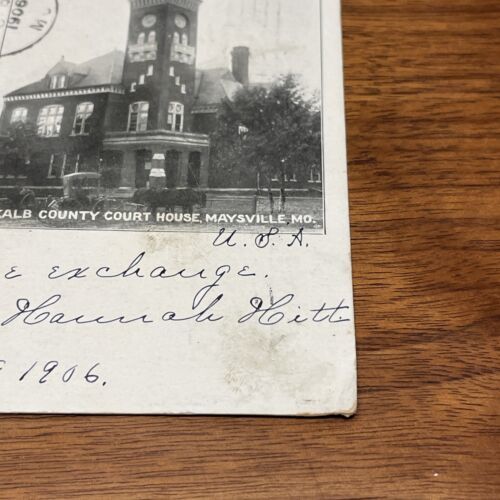 1906
MO
KALB COUNTY COURT HOUSE, MAYSVILLE, MO.
U. S. A.
e exchange.
Hannah Hitt
1906.